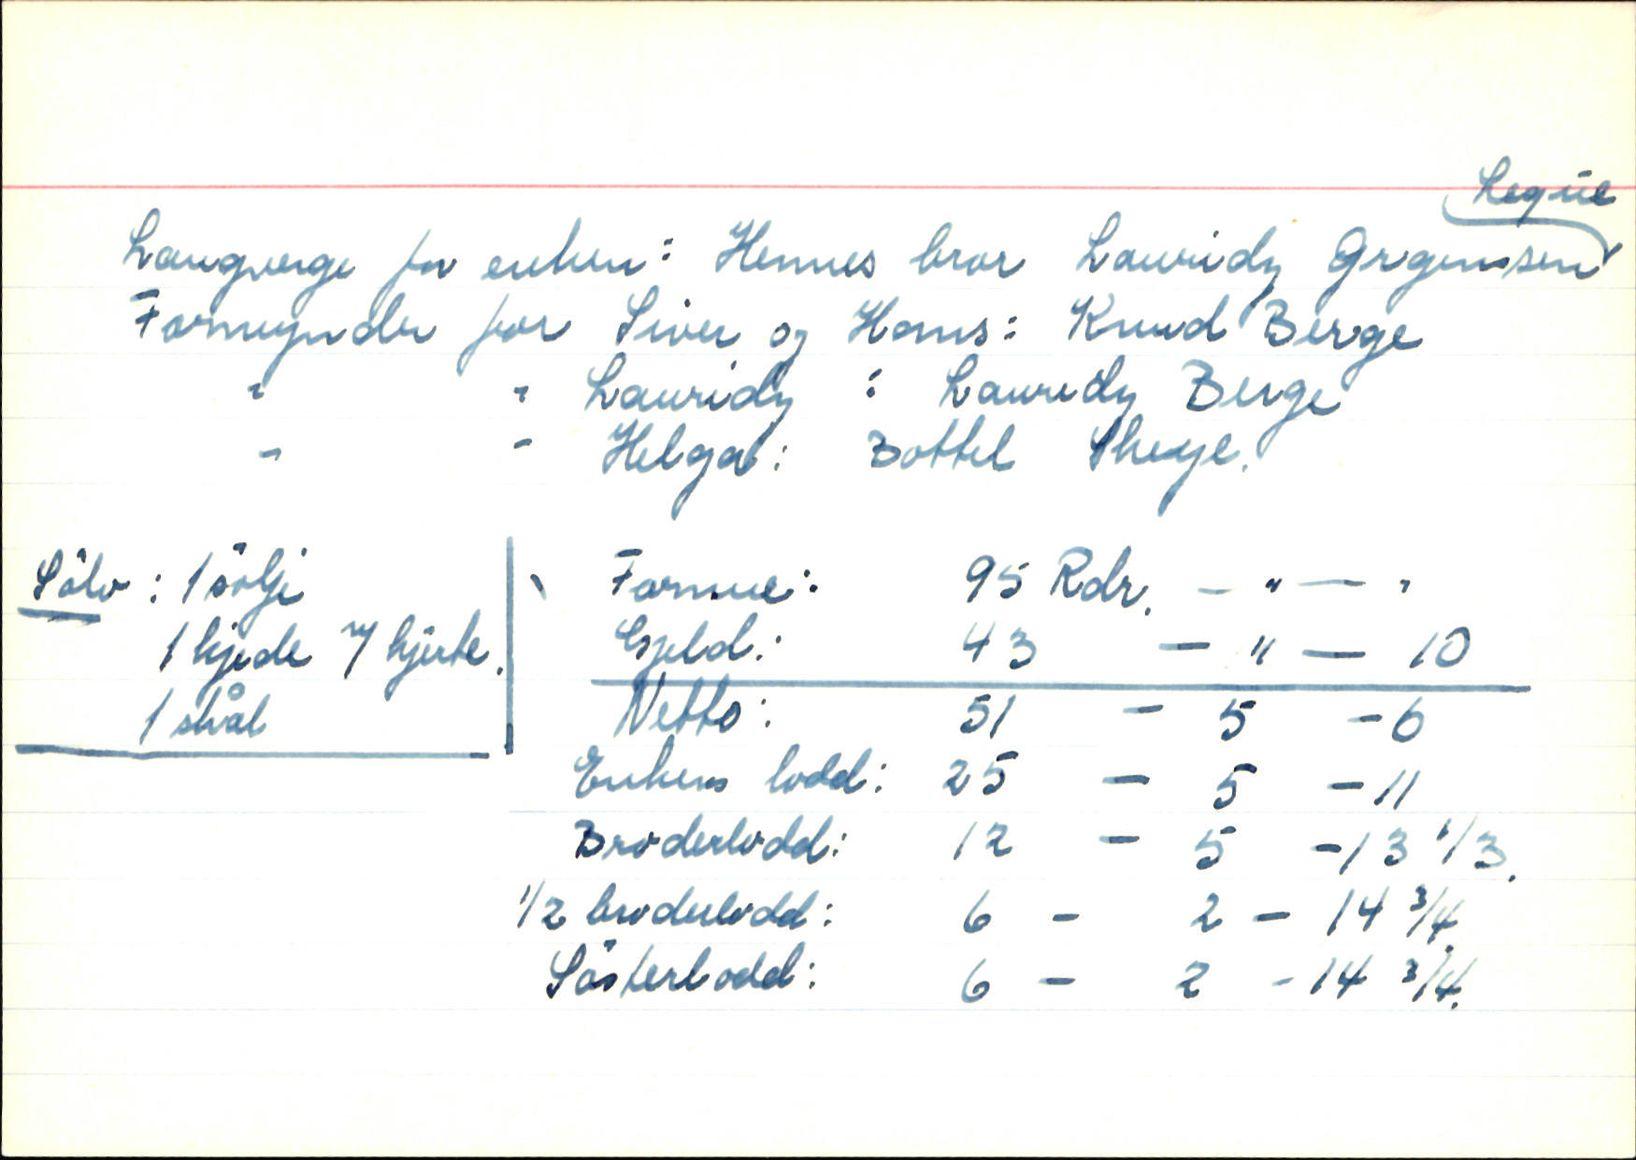 Leque
Laugverge for enken: Hennes bror Lauridz Grgensen
Formynder for Siver og Hans: Knud Berge
" " Lauridz : Lauridz Berge
" " Helga: Bottel
Sölv : 1 sölje
1 kjede m/ hjerte.
1 skål
Formue: 95 Rdr. - " - "
Gjeld: 43 - " - 10
Netto: 51 - 5 - 6
Enkens lodd: 25 - 5 - 11
Broderlodd: 12 - 5 - 13 1/3.
1/2 broderlodd: 6 - 2 - 14 3/4.
Sösterlodd: 6 - 2 - 14 3/4.